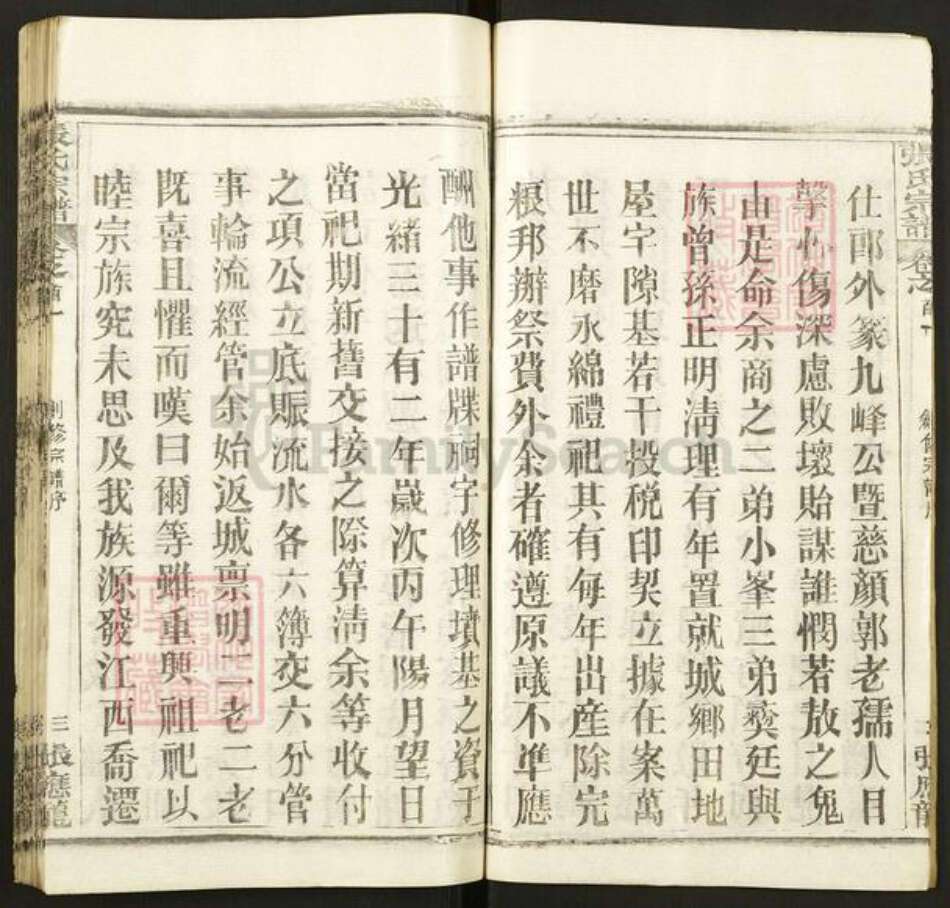 張氏宗譜
卷之首一
張應龍
仕郎外篆九峰公暨慈顏郭老孺人目
擊心傷深慮敗壞貽謀誰憫若敖之鬼
由是命余商之二弟小峯三弟燮廷與
族曾孫正明清理有年置就城鄉田地
屋宇隙基若干投稅印契立據在案萬
世不磨永綿禮祀其有每年出產除完
粮邦辦祭費外余者確遵原議不準應
酬他事作譜牒祠字修理墳基之資于
光緒三十有二年歲次丙午陽月望日
當祀期新舊交接之際算清余等收付
之項公立底賬流水各六簿交六分管
事輪流經管余始返城禀明二老二老
既喜且懼而嘆曰爾等雖重興祖祀以
睦宗族究未思及我族源發江西喬遷
張氏宗譜
卷之首一
創修宗譜序
三
張應龍
FamilySearch